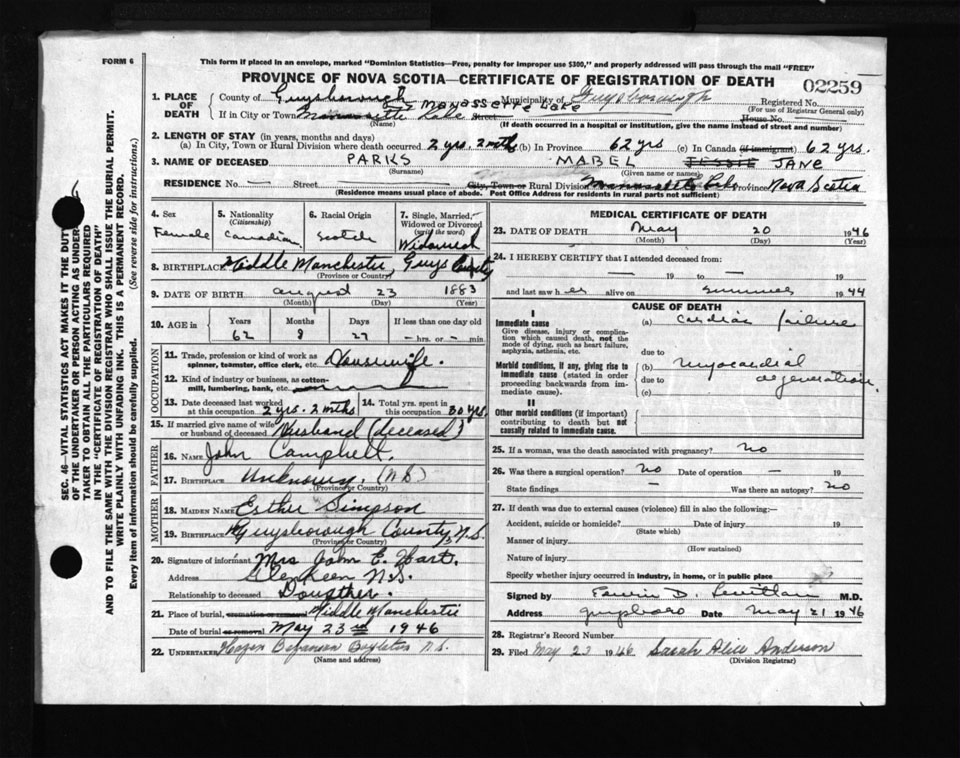 FORM 6
This form if placed in an envelope, marked "Dominion Statistics—Free, penalty for improper use $300," and properly addressed will pass through the mail "FREE"
PROVINCE OF NOVA SCOTIA—CERTIFICATE OF REGISTRATION OF DEATH
02259
1. PLACE OF DEATH County of Guysborough Municipality of Guysborough Registered No.
(For use of Registrar General only)
If in City or Town Manassette Lake Street House No.
(Name) (If death occurred in a hospital or institution, give the name instead of street and number)
2. LENGTH OF STAY (in years, months and days)
(a) In City, Town or Rural Division where death occurred 2 yrs. 2 mths (b) In Province 62 yrs (c) In Canada (if immigrant) 62 yrs.
3. NAME OF DECEASED PARKS MABEL JESSIE JANE
(Surname) (Given name or names)
RESIDENCE No. — Street City, Town or Rural Division Manassette Lake Province Nova Scotia
(Residence means usual place of abode. Post Office Address for residents in rural parts not sufficient)
SEC. 46—VITAL STATISTICS ACT MAKES IT THE DUTY
OF THE UNDERTAKER OR PERSON ACTING AS UNDERTAKER TO OBTAIN ALL THE PARTICULARS REQUIRED
IN THE "CERTIFICATE OF REGISTRATION OF DEATH"
AND TO FILE THE SAME WITH THE DIVISION REGISTRAR WHO SHALL ISSUE THE BURIAL PERMIT.
WRITE PLAINLY WITH UNFADING INK. THIS IS A PERMANENT RECORD.
Every item of information should be carefully supplied. (See reverse side for instructions.)
4. Sex Female
5. Nationality (Citizenship) Canadian
6. Racial Origin Scotch
7. Single, Married, Widowed or Divorced (write the word) Widowed
8. BIRTHPLACE Middle Manchester, Guys County
(Province or Country)
9. DATE OF BIRTH August 23 1883
(Month) (Day) (Year)
10. AGE in Years Months Days If less than one day old
62 8 27 — hrs. or — min.
OCCUPATION
11. Trade, profession or kind of work as spinner, teamster, office clerk, etc. Housewife.
12. Kind of industry or business, as cotton-mill, lumbering, bank, etc.
13. Date deceased last worked at this occupation 2 yrs. 2 mths
14. Total yrs. spent in this occupation 30 yrs.
15. If married give name of wife or husband of deceased Husband (deceased)
FATHER
16. NAME John Campbell.
17. BIRTHPLACE Unknown. (N.S)
(Province or Country)
MOTHER
18. MAIDEN NAME Esther Simpson
19. BIRTHPLACE Guysborough County, N.S.
(Province or Country)
20. Signature of informant Mrs John E. Hart.
Address N.S.
Relationship to deceased Daughter.
21. Place of burial, cremation or removal Middle Manchester
Date of burial or removal May 23rd 1946
22. UNDERTAKER Boylston N.S.
(Name and address)
MEDICAL CERTIFICATE OF DEATH
23. DATE OF DEATH May 20 1946
(Month) (Day) (Year)
24. I HEREBY CERTIFY that I attended deceased from:
— 19 to — 19
and last saw her alive on summer 1944
CAUSE OF DEATH
I
Immediate cause
Give disease, injury or complication which caused death, not the mode of dying, such as heart failure, asphyxia, asthenia, etc.
(a) cardiac failure
due to
Morbid conditions, if any, giving rise to immediate cause (stated in order proceeding backwards from immediate cause).
(b) myocardial degeneration.
due to
(c)
II
Other morbid conditions (if important) contributing to death but not causally related to immediate cause.
25. If a woman, was the death associated with pregnancy? no
26. Was there a surgical operation? no Date of operation — 19
State findings — Was there an autopsy? no
27. If death was due to external causes (violence) fill in also the following:—
Accident, suicide or homicide? Date of injury 19
(State which)
Manner of injury
(How sustained)
Nature of injury
Specify whether injury occurred in industry, in home, or in public place
Signed by Edwin D. M.D.
Address Guysboro Date May 21 1946
28. Registrar's Record Number
29. Filed May 23 1946 Sarah Alice Anderson
(Division Registrar)